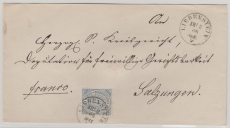 LIEBENSTEIN
An
Herzogl. S. Kreisgericht,
Deputation für freiwillige Gerichtsbarkeit
franco.
Salzungen.